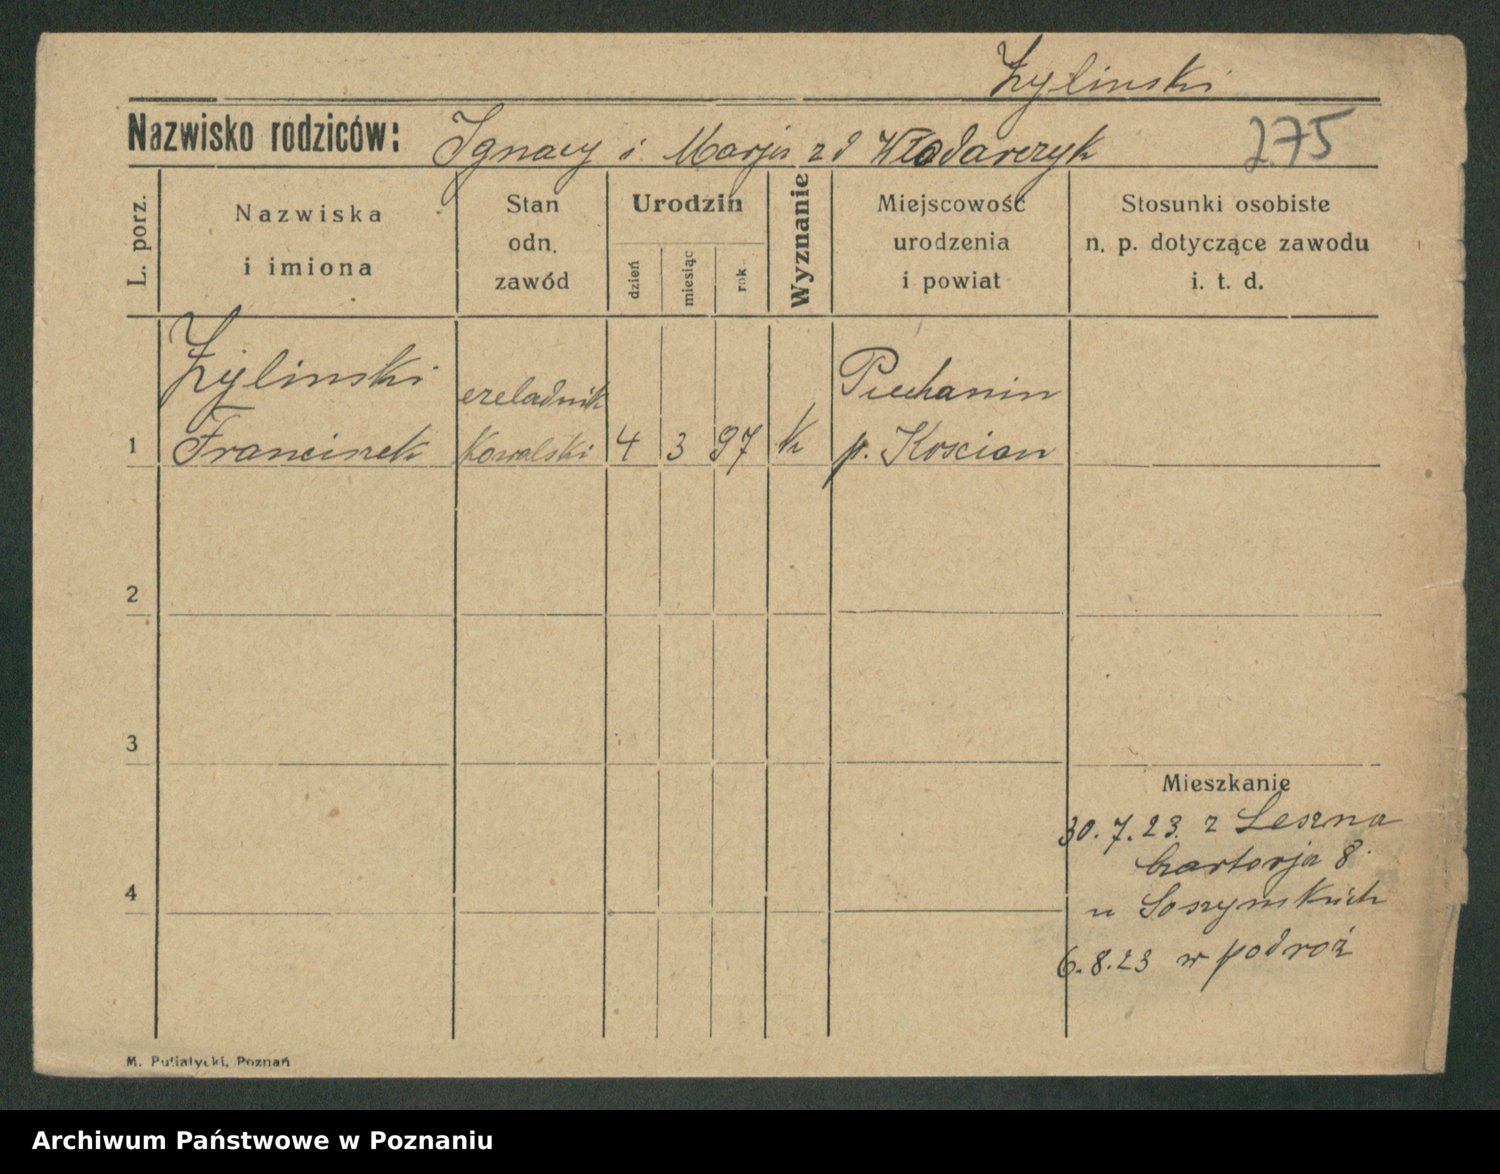 Żylinski
Nazwisko rodziców: Ignacy i Marja zd Włodarczyk 275
L. porz.
Nazwiska
i imiona
Stan
odn.
zawód
Urodzin
dzień
miesiąc
rok
Wyznanie
Miejscowość
urodzenia
i powiat
Stosunki osobiste
n. p. dotyczące zawodu
i. t. d.
Żylinski czeladnik Piechanin
1 Franciszek Kowalski 4 3 97 k p. Koscian
2
3
Mieszkanie
30.7.23. z Leszna
8.
4
u Soszynskich
6.8.23 w podroż
M. Putiatycki, Poznań
Archiwum Państwowe w Poznaniu